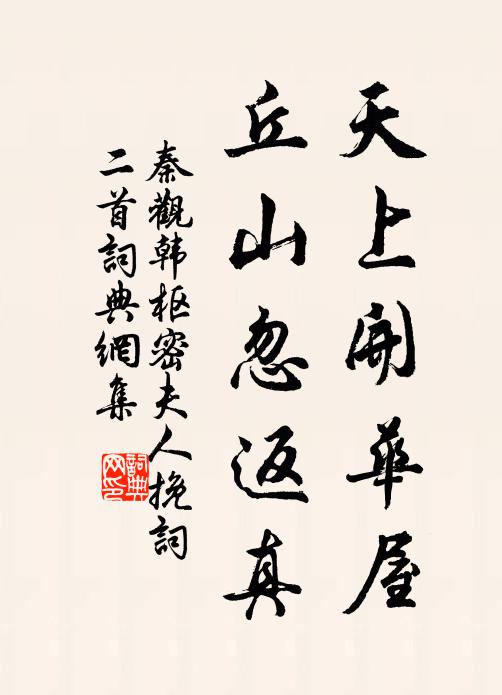 天上開華屋
丘山忽返真
秦觀韩枢密夫人挽詞
二首詞典網集
詞典
网印